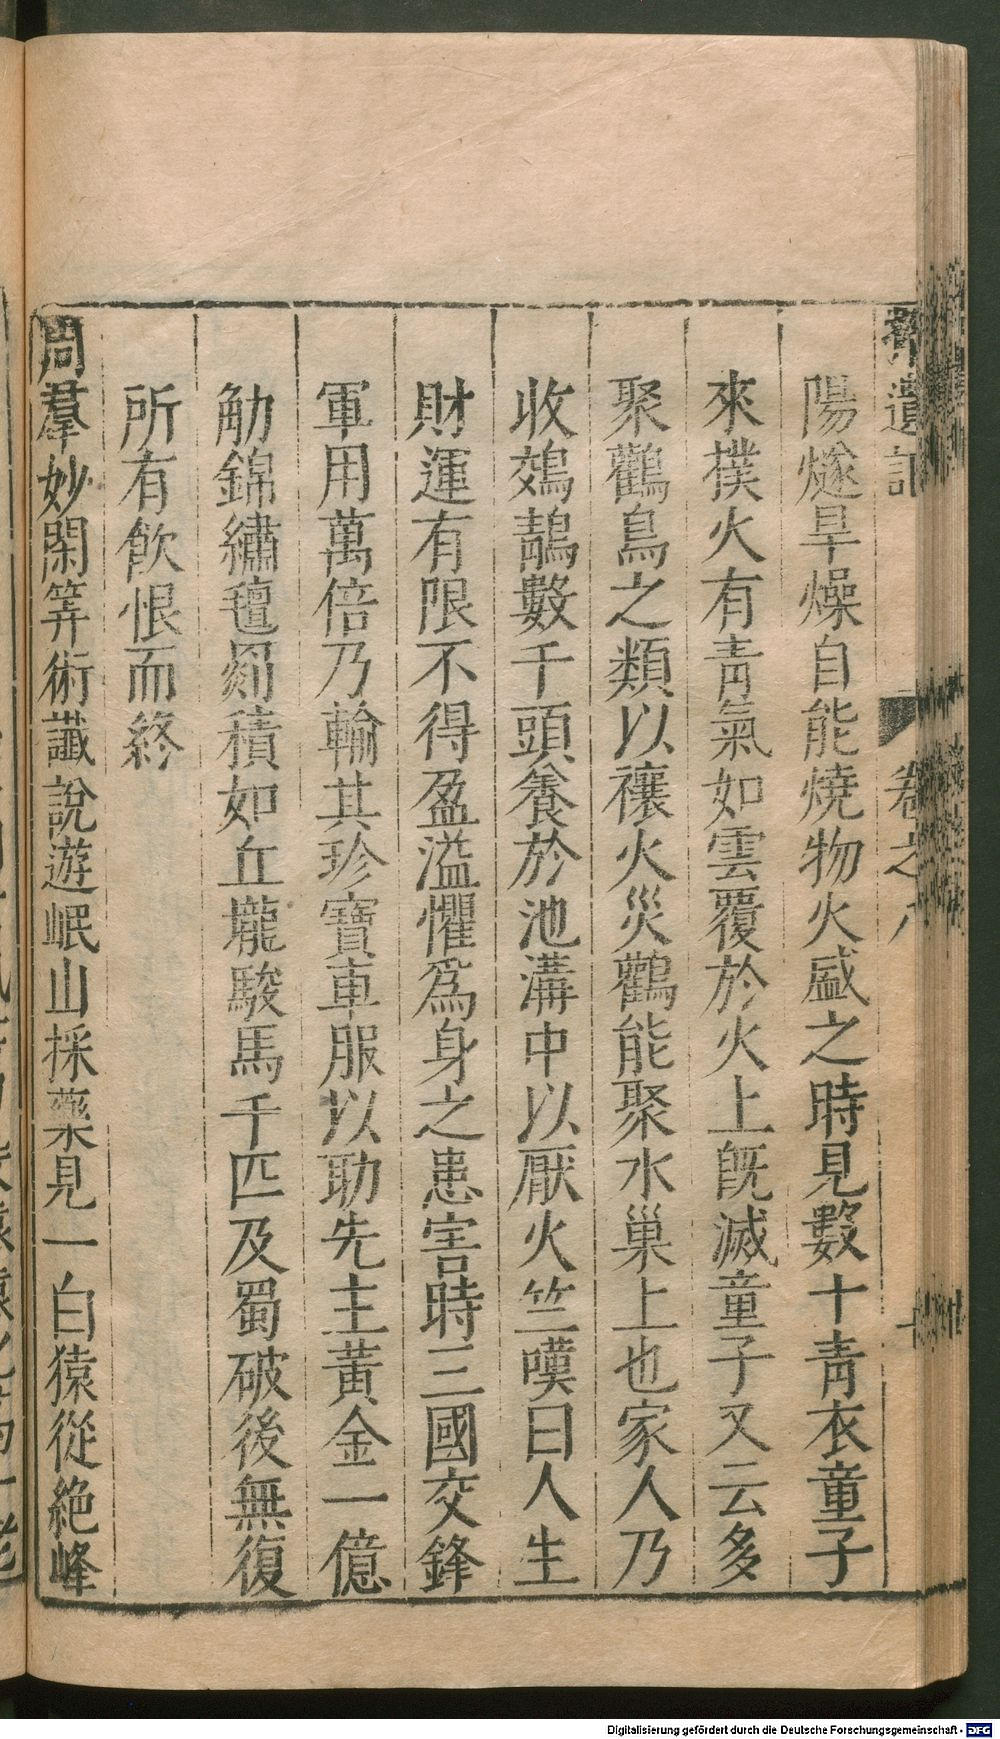 陽燧旱燥自能燒物火盛之時見數十青衣童子
來撲火有青氣如雲覆於火上旣滅童子又云多
聚鸛鳥之類以禳火災鸛能聚水巢上也家人乃
收鵁鶄數千頭養於池溝中以厭火竺嘆曰人生
財運有限不得盈溢懼爲身之患害時三國交鋒
軍用萬倍乃輸其珍寶車服以助先主黃金一億
觔錦繡氊罽積如丘壠駿馬千匹及蜀破後無復
所有飮恨而終
周羣妙閑筭術讖說遊岷山採藥見一白猿從絶峰
遺記
卷之八
Digitalisierung gefördert durch die Deutsche Forschungsgemeinschaft - DFG